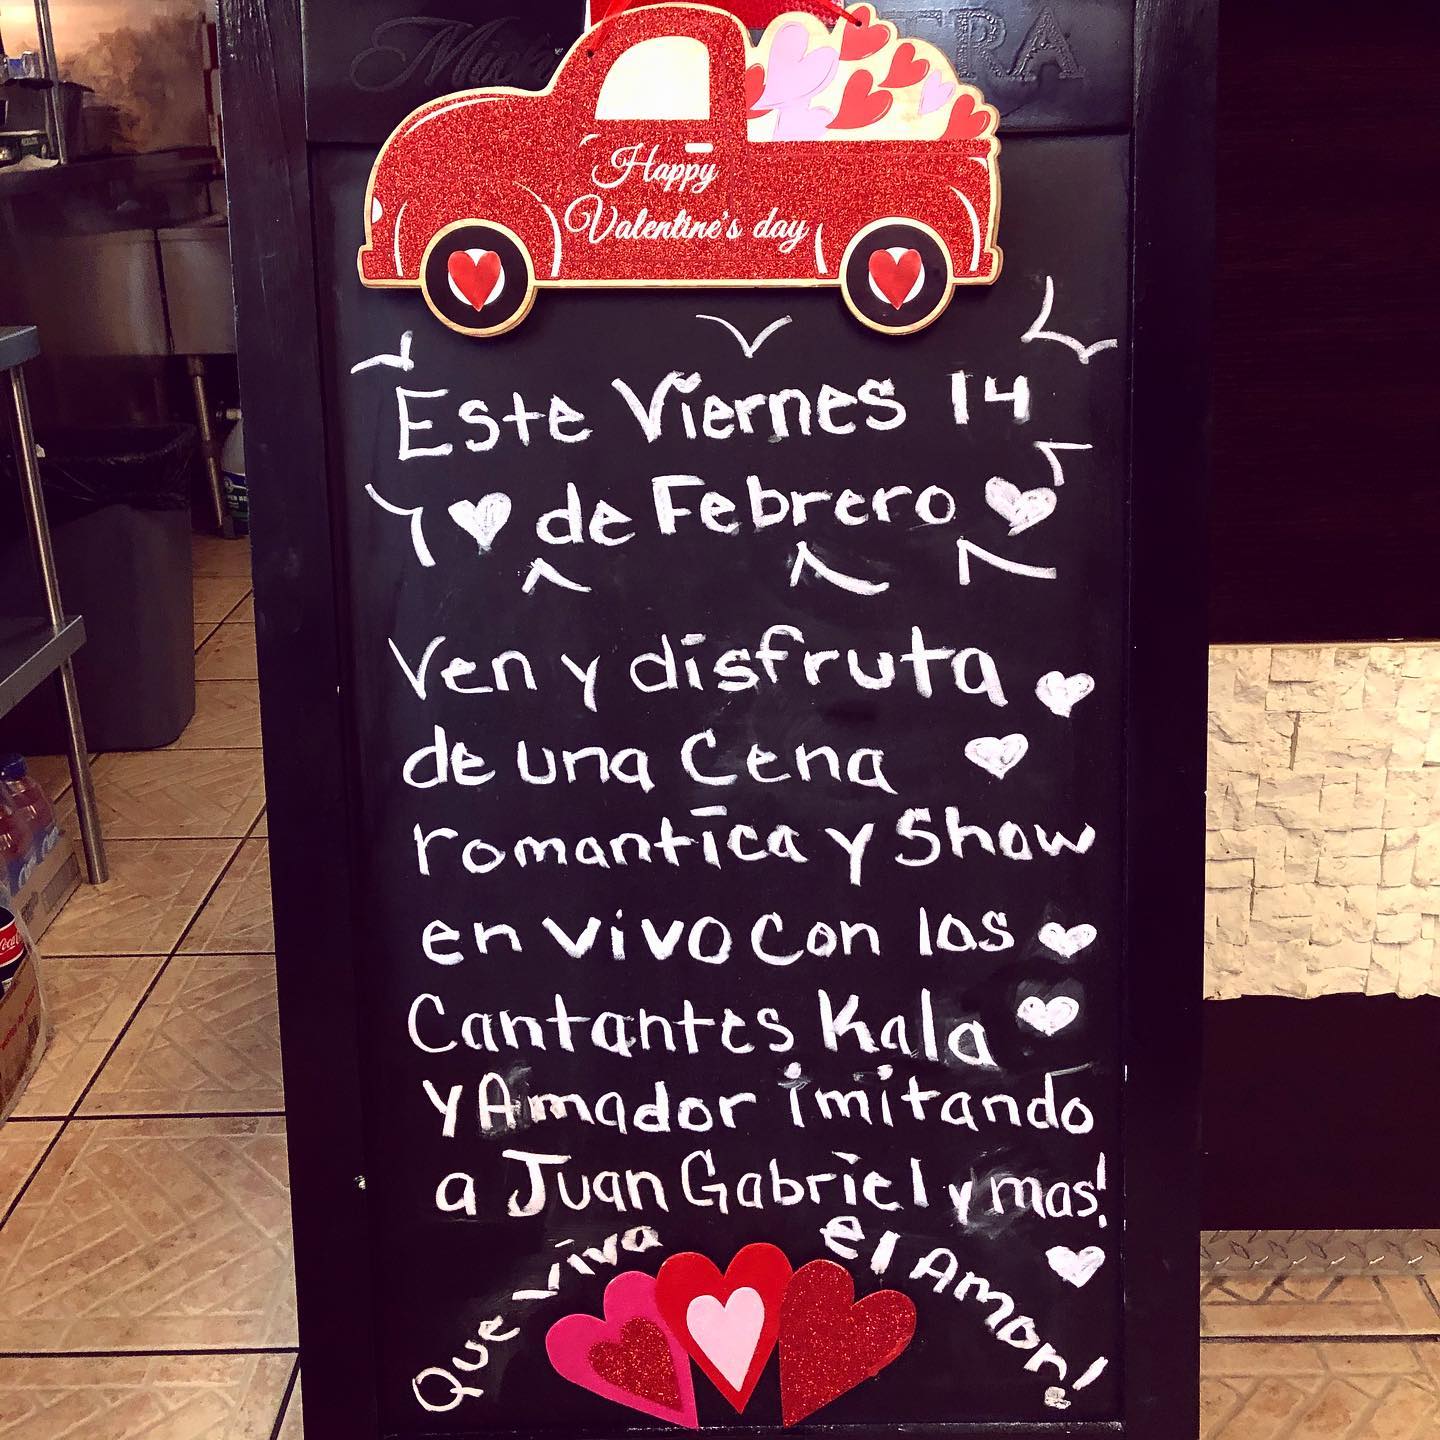 Happy
Valentine's day
Este Viernes 14
de Febrero
Ven y disfruta
de una Cena
romantica y Show
en vivo con los
Cantantes Kala
y Amador imitando
a Juan Gabriel y mas!
Que viva el Amor!